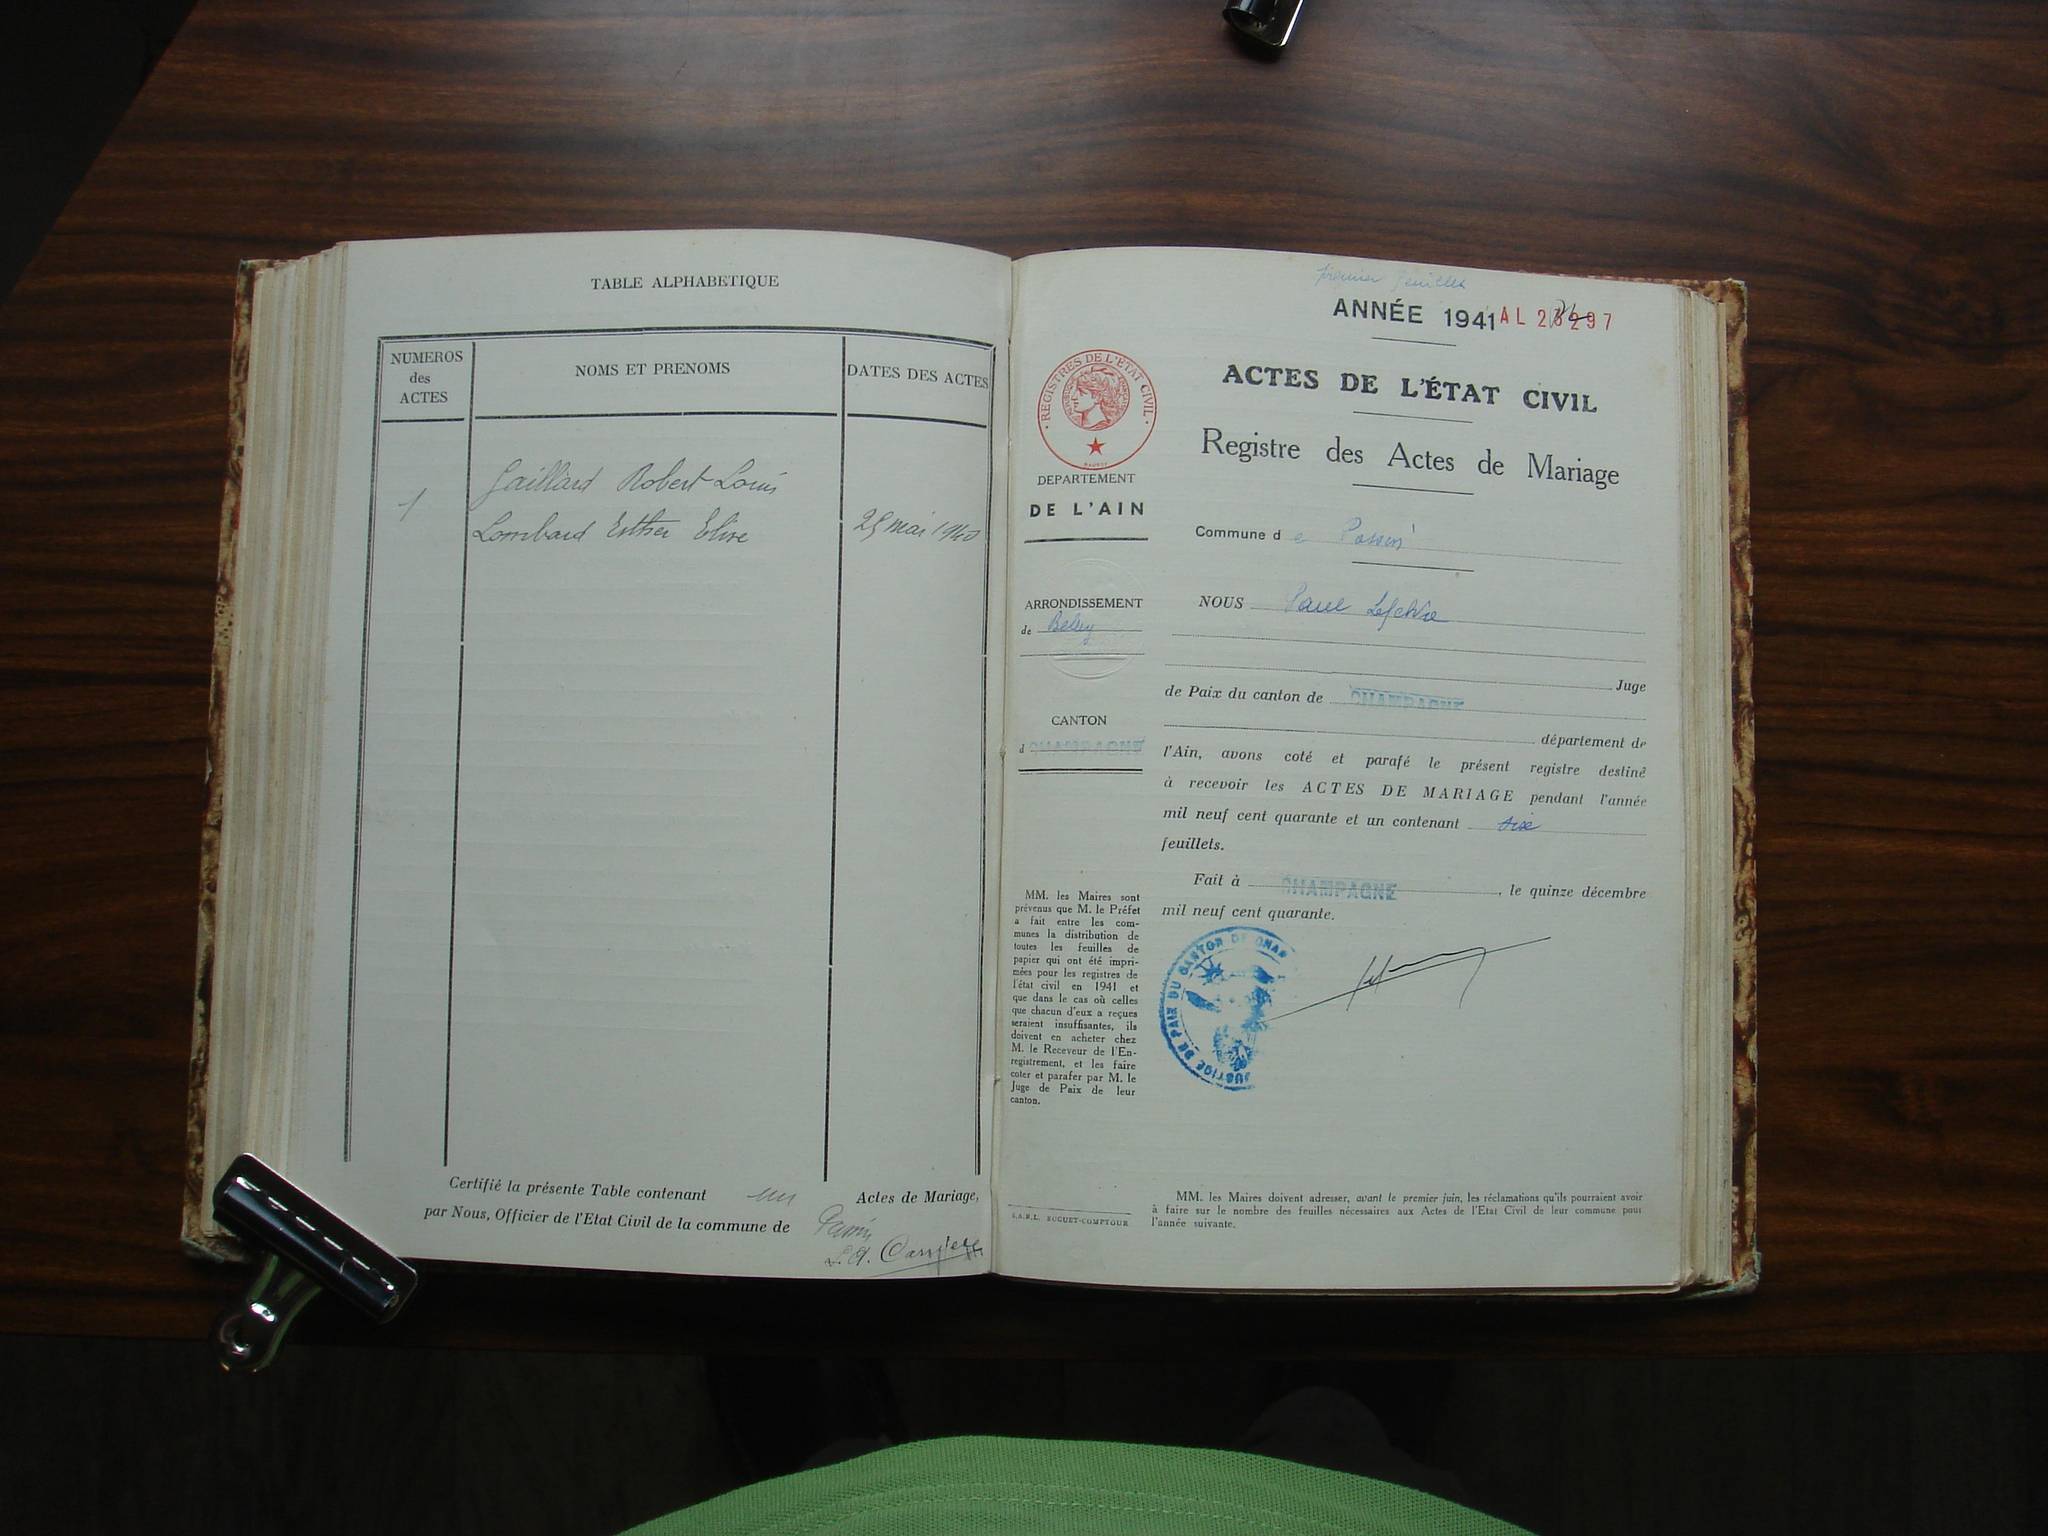 TABLE ALPHABETIQUE
NUMEROS
des
ACTES
NOMS ET PRENOMS
DATES DES ACTES
1
Gaillard Robert Louis
Lombard Esther Elise
25 mai 1940
Certifié la présente Table contenant un Actes de Mariage,
par Nous, Officier de l'Etat Civil de la commune de
premier feuillet
ANNÉE 1941
AL
297
ACTES DE L'ÉTAT CIVIL
Registre des Actes de Mariage
REGISTRES DE L'ETAT CIVIL
DEPARTEMENT
DE L'AIN
ARRONDISSEMENT
de Belley
CANTON
d CHAMPAGNE
MM. les Maires sont
prévenus que M. le Préfet
a fait entre les com-
munes la distribution de
toutes les feuilles de
papier qui ont été impri-
mées pour les registres de
l'état civil en 1941 et
que dans le cas où celles
que chacun d'eux a reçues
seraient insuffisantes, ils
doivent en acheter chez
M. le Receveur de l'En-
registrement, et les faire
coter et parafer par M. le
Juge de Paix de leur
canton.
S.A.R.L. BUGUET-COMPTOUR
Commune de
NOUS Paul Lefebvre
Juge
de Paix du canton de CHAMPAGNE
département de
l'Ain, avons coté et parafé le présent registre destiné
à recevoir les ACTES DE MARIAGE pendant l'année
mil neuf cent quarante et un contenant six
feuillets.
Fait à CHAMPAGNE, le quinze décembre
mil neuf cent quarante.
JUSTICE DE PAIX DU CANTON DE CHAM
MM. les Maires doivent adresser, avant le premier juin, les réclamations qu'ils pourraient avoir
à faire sur le nombre des feuilles nécessaires aux Actes de l'Etat Civil de leur commune pour
l'année suivante.